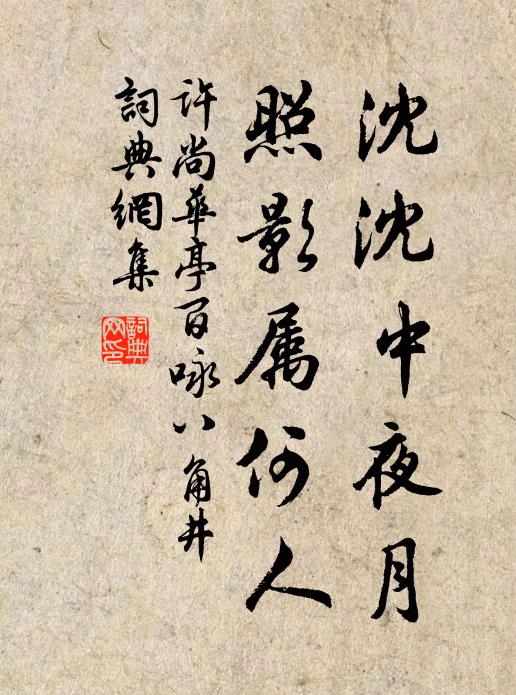 沈沈中夜月
照影属何人
許尚華亭百咏八角井
詞典網集
詞典
網印